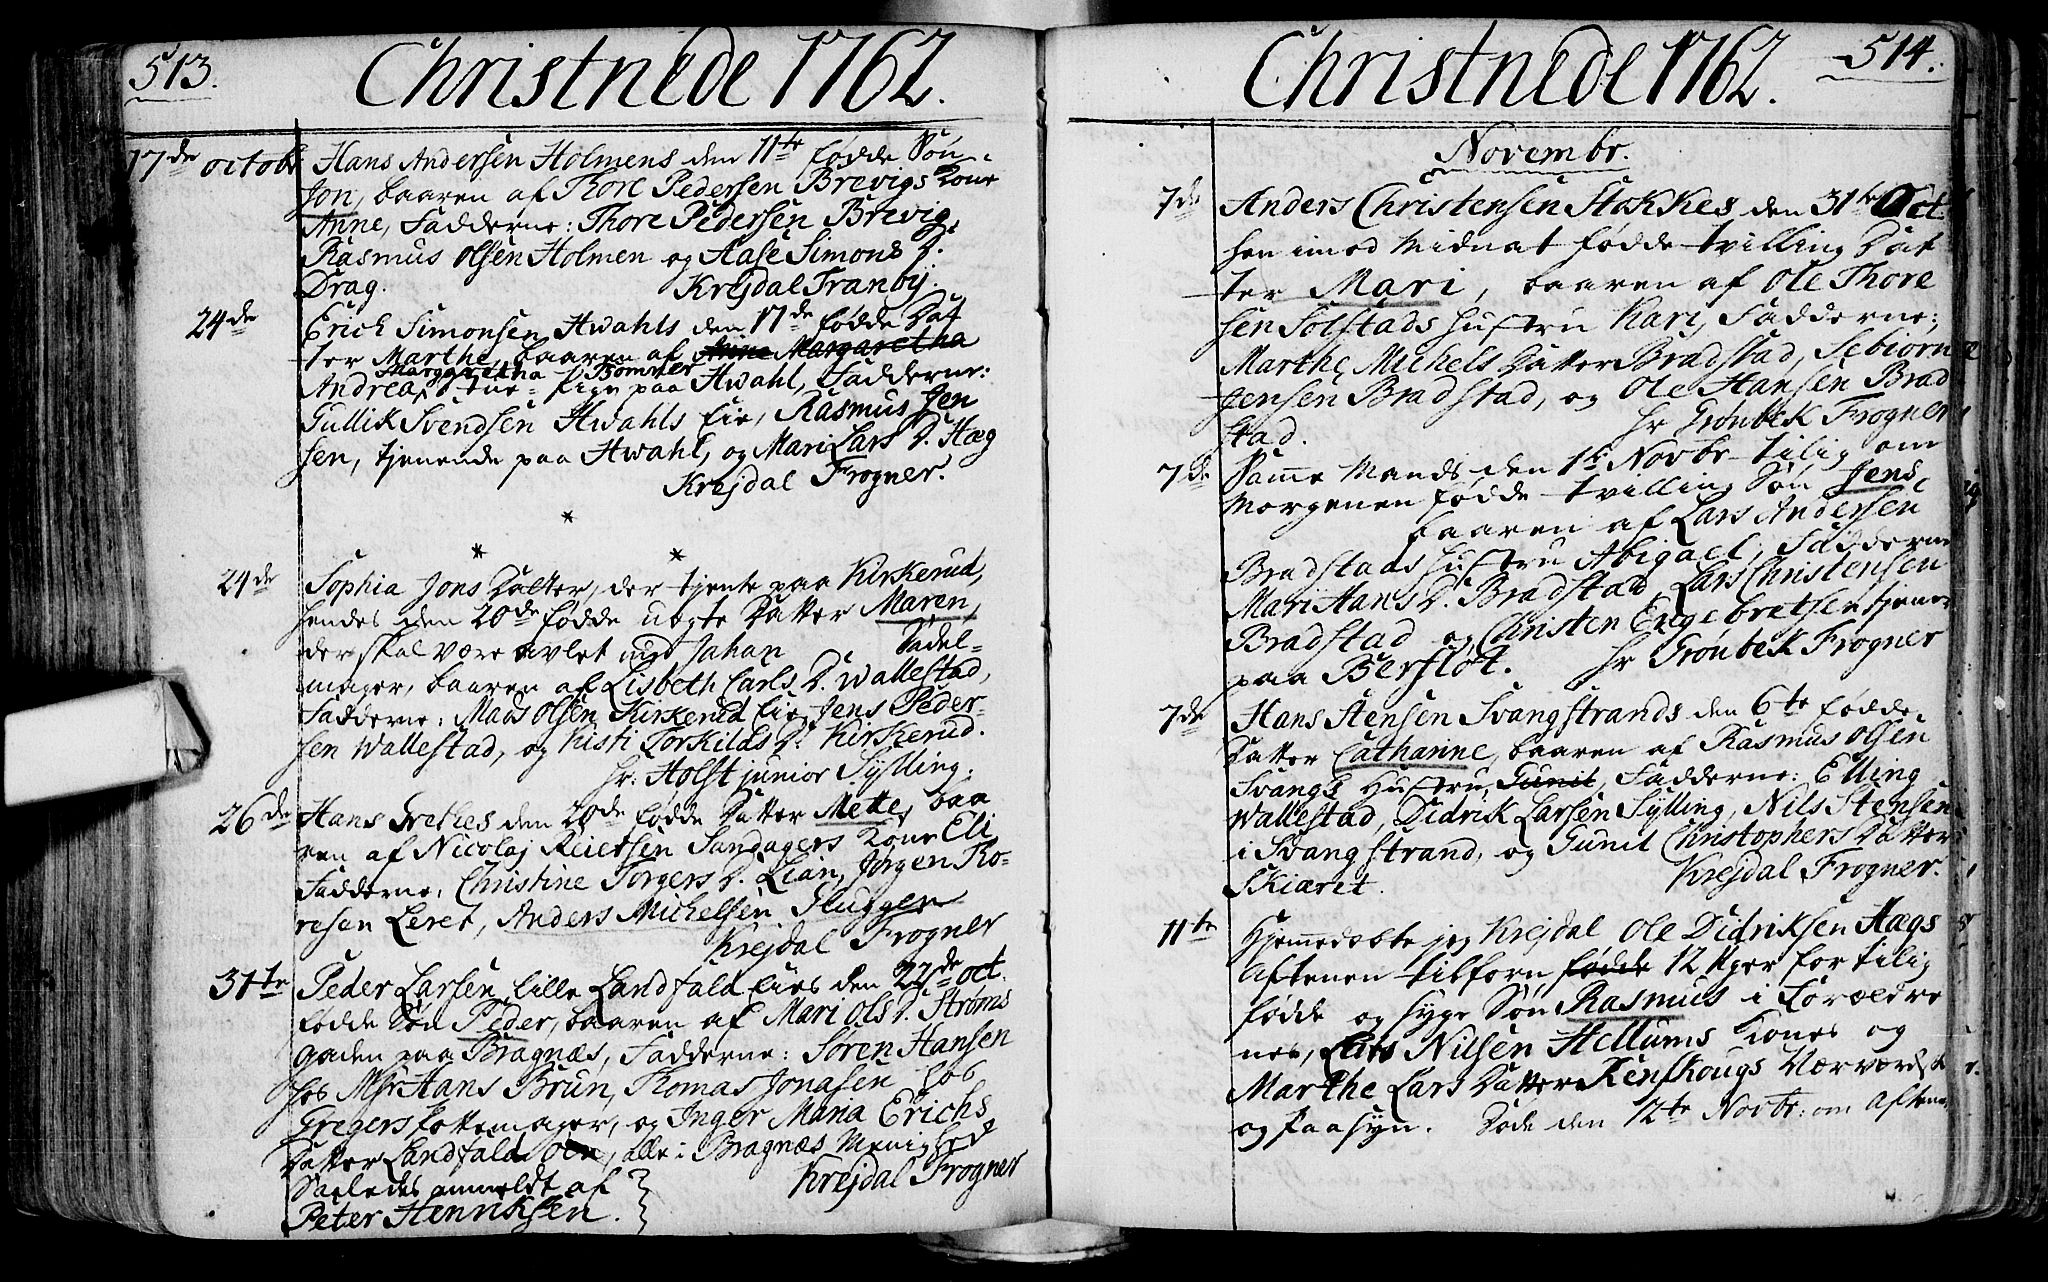 513.
Christnede 1762.
17de octobr Hans Andersen Holmens den 11te fødde Søn
Jon, baaren af Thore Pedersen Brevigs Kone
Anne, Fadderne: Thore Pedersen Brevig,
Rasmus Olsen Holmen og Aase Simons D.
Drag. Krejdal Tranby.
24de Erich Simonsen Hwahls den 17de fødde Dat
ter Marthe, baaren af Anne Margaretha
Margaretha Bommer
Andrea, Stue-Pige paa Hwahl, Fadderne:
Gullik Svendsen Hwahls Eie, Rasmus Jen
sen, tjenende paa Hwahl, og Mari Lars D. Hæg
Krejdal Frogner.
24de Sophia Jons Datter, der tjente paa Kirkerud,
hendes den 20de fødde uegte Datter Maren,
der skal være avlet med Johan Sadel-
mager, baaren af Lisbeth Carls D. Wallestad,
Fadderne: Mads Olsen Kirkerud Eie, Jens Peder-
sen Wallestad, og Kisti Torkilds D. Kirkerud.
hr. Holst junior Sylling.
26de Hans Grethes den 20de fødde Datter Mette, baa
ren af Nicolaj Reiersen Sandagers Kone Eli
Fadderne: Christine Torgers D. Lian, Jørgen Tho-
resen Leret, Anders Michelsen Glugger
Krejdal Frogner
31te Peder Larsen lille Landfald Eies den 22de oct.
fødde Søn Peder, baaren af Mari Ols D. Strøms
Gaden paa Bragnæs, Fadderne: Søren Hansen
hos Msr Hans Brun, Thomas Jonasen hos
Gregers Pottemager, og Inger Maria Erichs
Datter Landfald Øen, alle i Bragnæs Menighed
Saaledes anmeldt af
Krejdal Frogner
Peter Henriksen.
Christnede 1762.
514.
Novembr.
7de Anders Christensen Stokkes den 31te Oct
hen imod Midnat fødde tvilling Dat
ter Mari, baaren af Ole Thore
sen Solstads Hustru Kari, Fadderne:
Marthe Michels Datter Bradstad, Sebiorn
Jensen Bradstad, og Ole Hansen Brad
stad. hr Grønbek Frogner
7de Same Mands den 1te Novbr tilig om
Morgenen fødde tvilling Søn Jens,
baaren af Lars Andersen
Bradstads Hustru Abigael, Fadderne
Mari Hans D. Bradstad Lars Christensen
Bradstad og Christen Engebretsen tjener
paa Berfløt. hr Grønbek Frogner
7de Hans Stensen Svangstrands den 6te fødde
Datter Catharine, baaren af Rasmus Olsen
Svangs Hustru Gunil, Fadderne: Elling
Wallestad, Didrik Larsen Sylling, Nils Stensen
i Svangstrand, og Gunil Christophers Datter
Skiæret. Krejdal Frogner.
11te Hjemmedøbte jeg Krejdal Ole Didriksen Hægs
Aftenen tilforn, fødde 12 Uger for tilig
fødde og syge Søn Rasmus i Forældre
nes, Nilsen Hellums Kones og
Marthe Lars Datter Renskougs Nærværelse
og Paasyn. Døde den 12te Novbr: om Aftenen